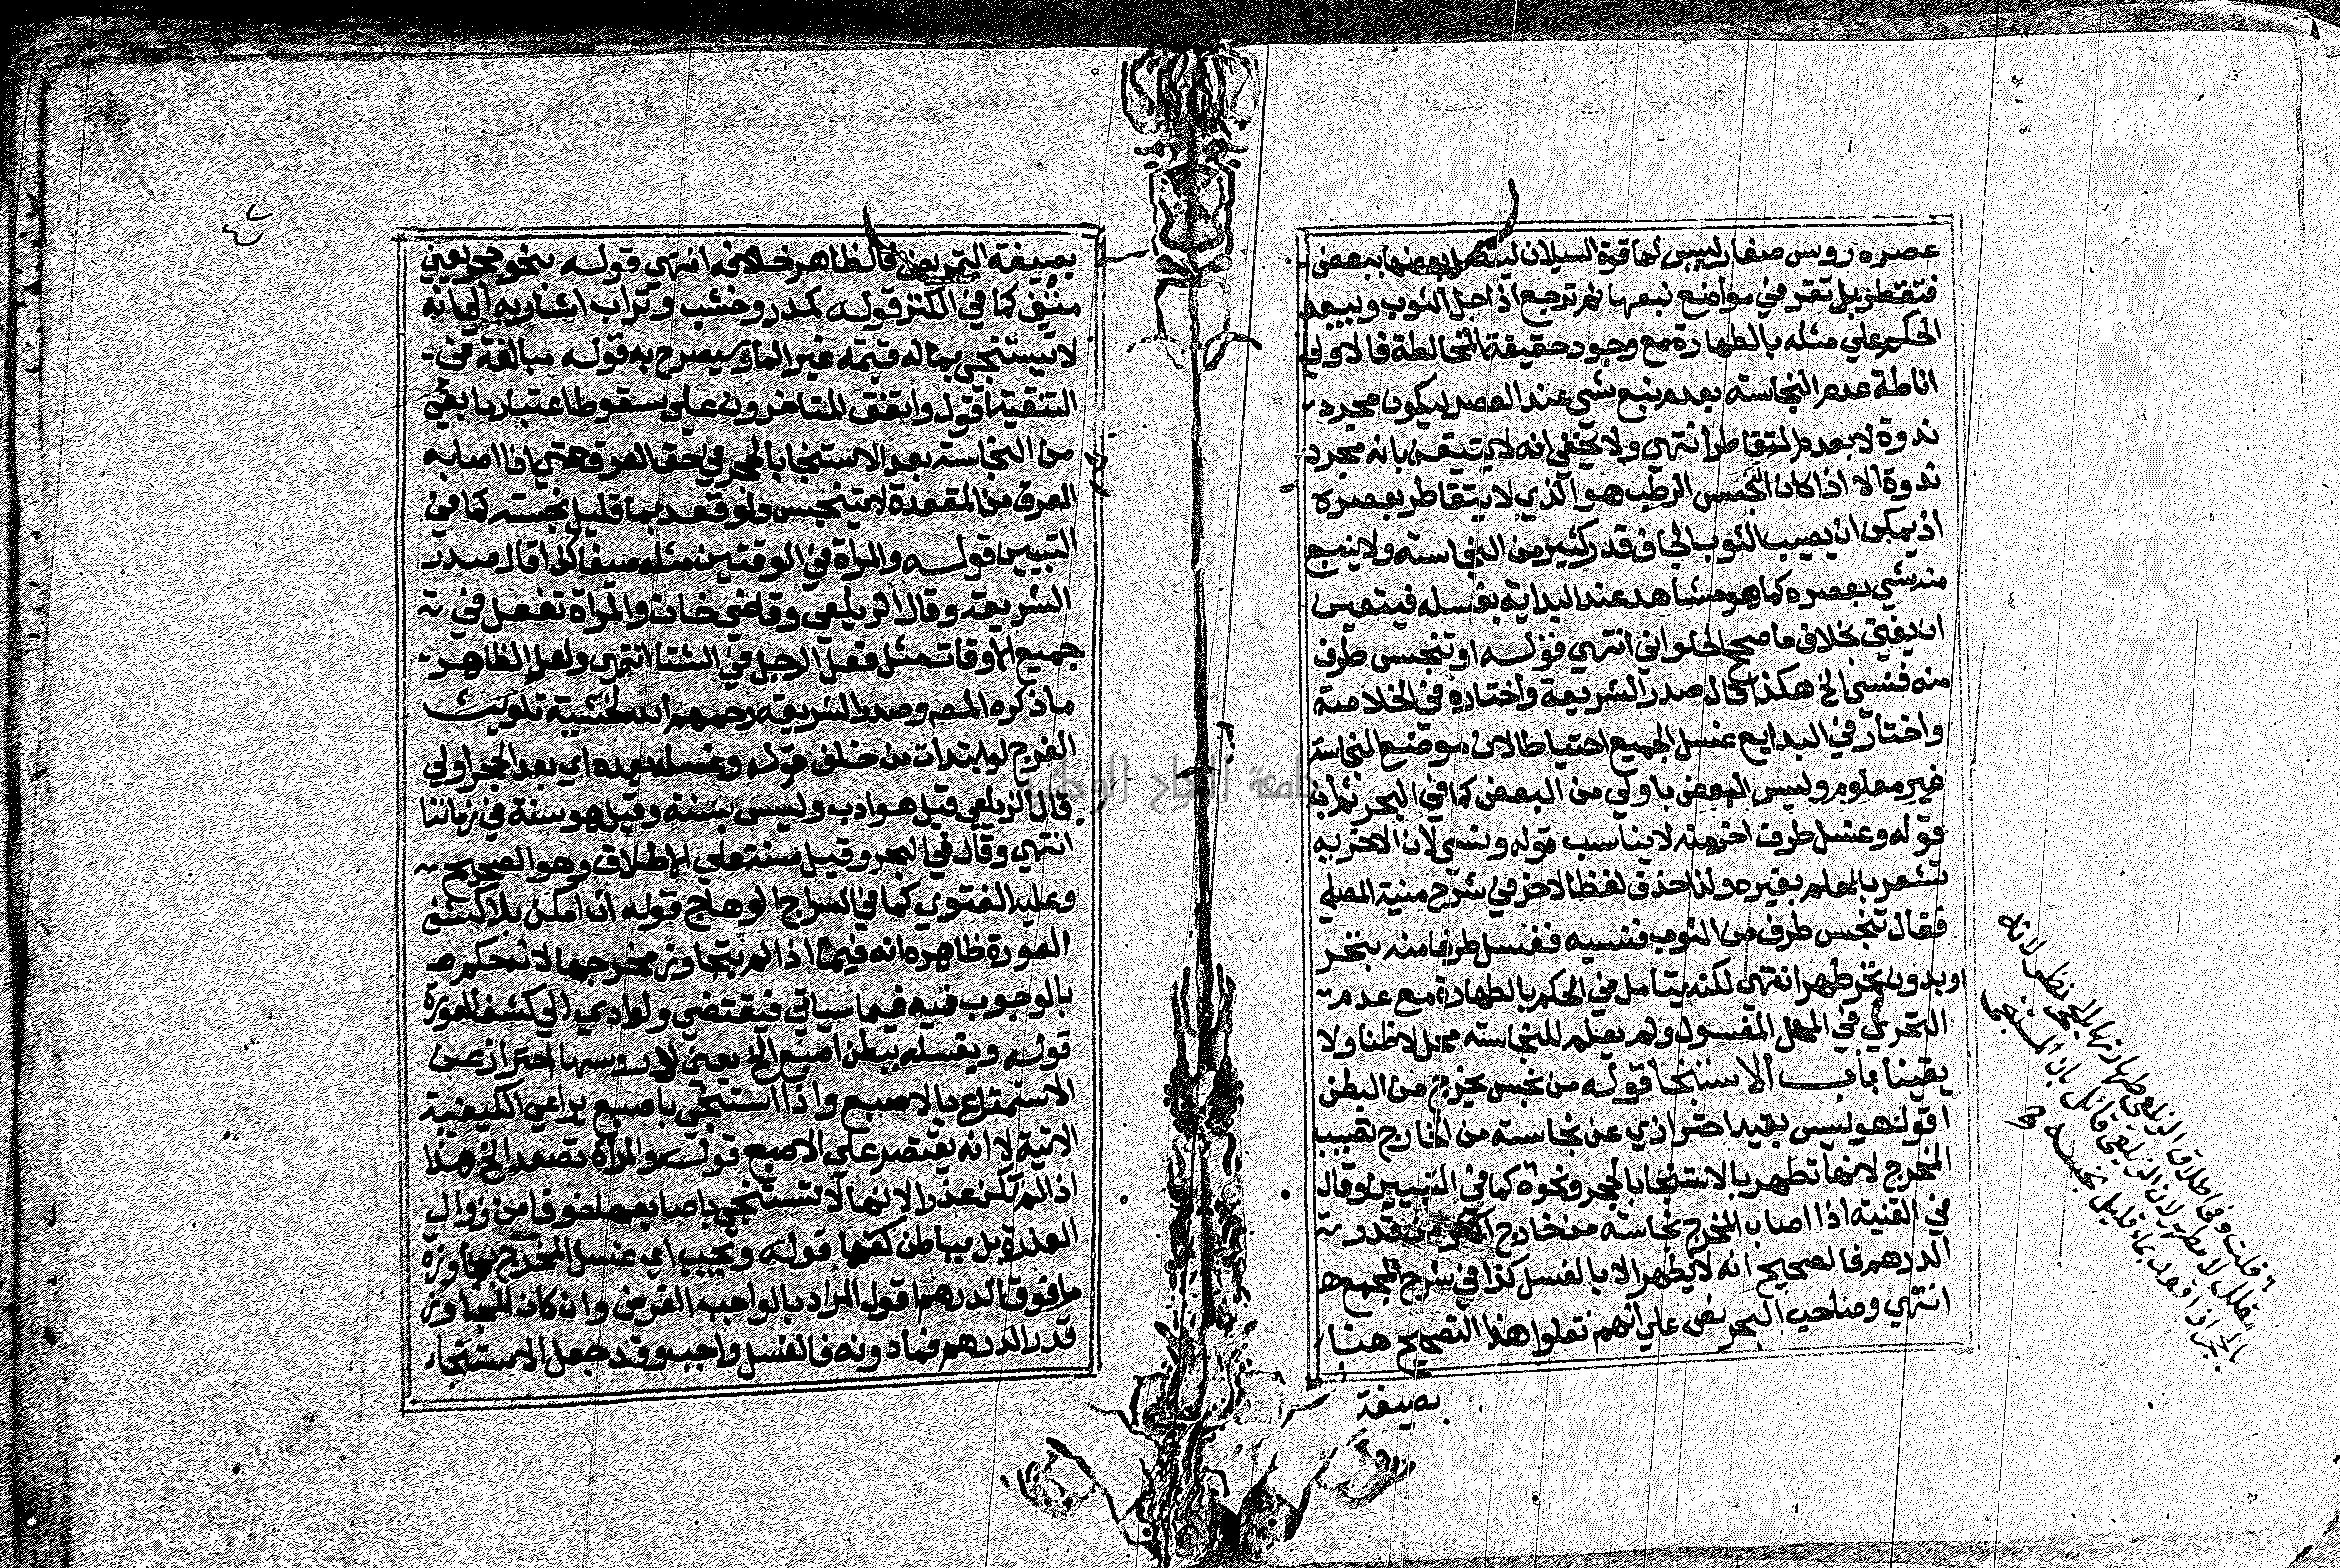 عصره روس صغار ليس لها قوة السيلان ليتصل بعضها ببعض
فتقطر بل تقر في مواضع نبعها ثم ترجع اذا حل الثوب ويبعد
الحكم علي مثله بالطهارة مع وجود حقيقة المخالطة فالاولي
اناطة عدم النجاسة بعدم نبع شي عند العصر ليكون مجرد
ندوة لا بعدم التقاطر انتهي ولا يخفي انه لا يتيقن بانه مجرد
ندوة الا اذا كان النجس الرطب هو الذي لا يتقاطر بعصره
اذ يمكن ان يصيب الثوب الجاف قدر كثير من النجاسة ولا ينبع
منه شي بعصره كما هو مشاهد عند البداية بغسله فيتعين
ان يفتي بخلاف ما صحح الحلواني انتهي قوله او تنجس طرف
منه فنسي الخ هكذا قال صدر الشريعة واختاره في الخلاصة
واختار في البدايع غسل الجميع احتياطا لان موضع النجاسة
غير معلوم وليس البعض باولي من البعض كما في البحر ثم ان
قوله وغسل طرف اخر منه لا يناسب قوله ونسي لان الاخرية
تشعر بالعلم بغيره ولذا حذف لفظ الاخر في شرح منية المصلي
فقال تنجس طرف من الثوب فنسيه فغسل طرفا منه بتحر
او بدون تحر طهر انتهي لكنه يتامل في الحكم بالطهارة مع عدم
التحري في المحل المغسول ولم يعلم للنجاسة محل لا ظنا ولا
يقينا باب الاستنجا قوله من نجس يخرج من البطن
اقول هو ليس بقيد احترازي عن نجاسة من الخارج تصيب
المخرج لانها تطهر بالاستنجا بالحجر ونحوه كما في التبيين وقال
في القنية اذا اصاب المخرج نجاسة من خارج اكثر من قدر
الدرهم فالصحيح انه لا يطهر الا بالغسل كذا في شرح المجمع
انتهي وصاحب البحر نص علي انهم نقلوا هذا التصحيح هنا
بصيغة
قلت وفي اطلاق الزيلعي طهارتها بالحجر نظر لانه
مقلل لا مطهر لان الزيلعي قائل بان المستنجي
بالحجر اذا قعد بماء قليل نجسه
بصيغة التمريض فالظاهر خلافه انتهي قوله بنحو حجر يعني
منق كما في الكنز قوله كمدر وخشب وتراب اشار به الي انه
لا يستنجي بما له قيمة غير الماء وسيصرح به قوله مبالغة في
التنقية اقول واتفق المتاخرون علي سقوط اعتبار ما بقي
من النجاسة بعد الاستنجا بالحجر في حق العرق حتي اذا اصابه
العرق من المقعدة لا يتنجس ولو قعد بما قليل نجسه كما في
التبيين قوله والمراة في الوقتين مثله صيفا كذا قال صدر
الشريعة وقال الزيلعي وقاضي خان والمراة تفعل في
جميع الاوقات مثل فعل الرجل في الشتا انتهي ولعل الظاهر
ما ذكره المصـ وصدر الشريعة رحمهم الله لخشية تلويث
الفرج لو ابتدات من خلف قوله وغسله بعده اي بعد الحجر اولي
قال الزيلعي قيل هو ادب وليس بسنة وقيل هو سنة في زماننا
انتهي وقال في البحر وقيل سنة علي الاطلاق وهو الصحيح
وعليه الفتوي كما في السراج الوهاج قوله ان امكن بلا كشف
العورة ظاهره انه فيما اذا لم يتجاوز مخرجها لانه حكم
بالوجوب فيه فيما سياتي فيقتضي ولو ادي الي كشف العورة
قوله ويغسله ببطن اصبع الخ يعني لا روسها احترازا عن
الاستمتاع بالاصبع واذا استنجي باصبع يراعي الكيفية
الاتية لا انه يقتصر علي الاصبع قوله والمراة تصعد الخ هذا
اذا لم تكن عذرا لانها لا تستنجي باصابعها خوفا من زوال
العذرة بل بباطن كفها قوله ويجب اي غسل المخرج بمجاوزة
ما فوق الدرهم اقول المراد بالواجب الفرض وان كان المجاوز
قدر الدرهم فما دونه فالغسل واجب وقد جعل الاستنجاء
جامعة النجاح الوطنية